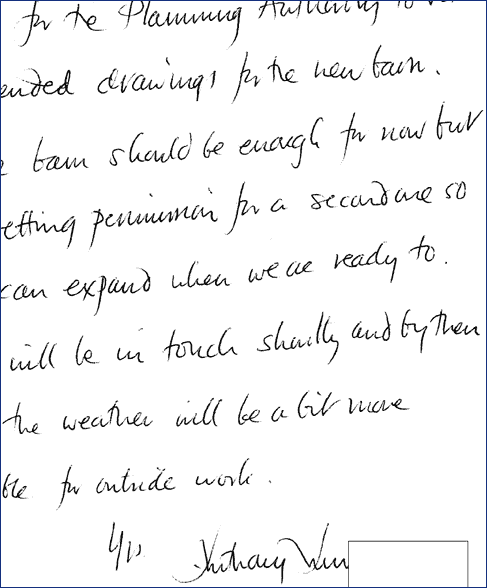 for the Planning Authority to
ended drawings for the new barn.
barn should be enough for now but
etting permission for a second one so
can expand when we are ready to.
will be in touch shortly and by then
the weather will be a bit more
ble for outside work.
Anthony